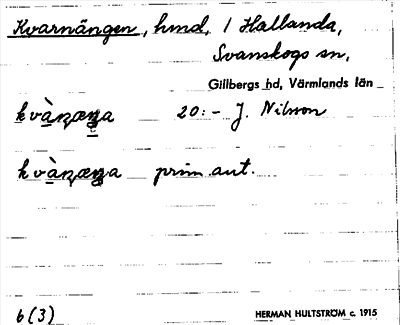 Kvarnängen, hmd, 1 Hallanda,
Svanskogs sn,
Gillbergs hd, Värmlands län
kvàṇæŋa 20:- J. Nilsson
kvàṇæŋa prim. aut.
6 (3) HERMAN HULTSTRÖM c. 1915